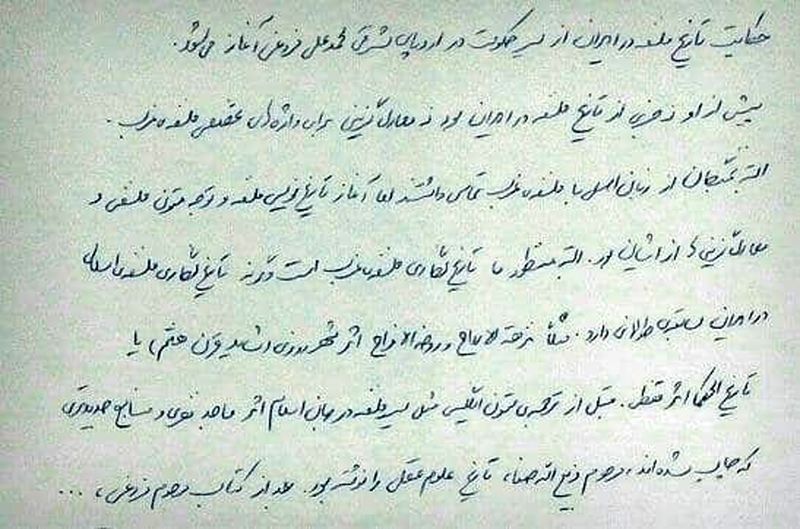 حکایت تاریخ فلسفه در ایران از سیر حکمت در اروپای محمدعلی فروغی آغاز می‌شود.
پیش از او نه خبری از تاریخ فلسفه در ایران بود نه معادل‌گزینی برای واژه‌های تخصصی فلسفه‌ی غرب.
البته نخبگان از زبان اصلی با فلسفه‌ی غرب تماس داشتند اما آغاز تاریخ‌نویسی فلسفه و ترجمه متون فلسفی و
معادل‌گزینی‌ها از ایشان بود. البته منظور ما تاریخ‌نگاری فلسفه‌ی غرب است وگرنه تاریخ‌نگاری فلسفه‌ی اسلامی
در ایران سابقه‌ی طولانی دارد. مثلاً نزهة الارواح و روضة الافراح اثر شهرزوری (شاید قرن هفتم) یا
تاریخ الحکما اثر قفطی. قبل از ترجمه‌ی متون انگلیسی مثل سیر فلسفه در جهان اسلام اثر ماجد فخری و منابع جدیدتری
که چاپ شده‌اند، مرحوم ذبیح الله صفا، تاریخ علوم عقلی را نوشته بود. بعد از کتاب مرحوم فروغی، ...